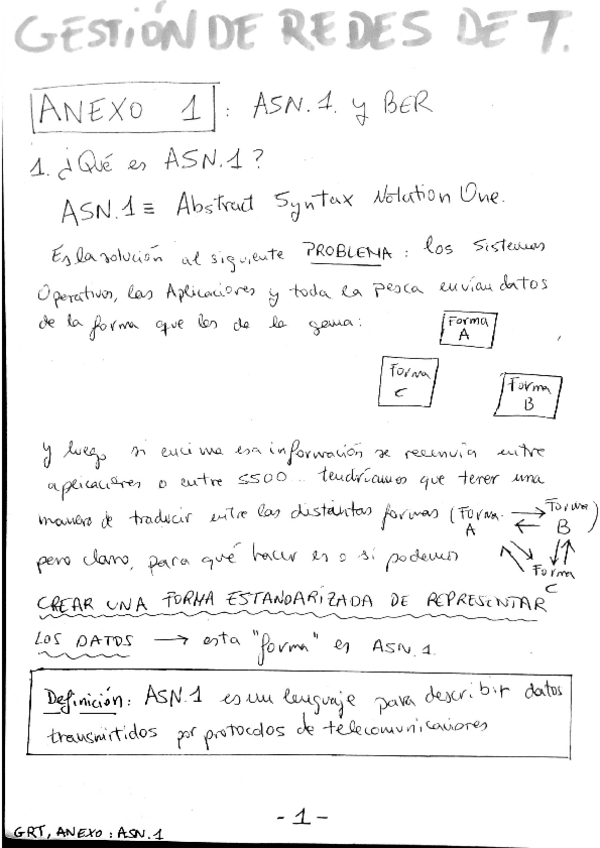 GESTIÓN DE REDES DE T.
ANEXO 1 : ASN.1. y BER
1. ¿Qué es ASN.1?
ASN.1 ≡ Abstract Syntax Notation One.
Es la solución al siguiente PROBLEMA: los Sistemas
Operativos, las Aplicaciones y toda la pesca envían datos
de la forma que les de la gana:
Forma
A
Forma
C
Forma
B
y luego si encima esa información se reenvía entre
aplicaciones o entre SSOO... tendríamos que tener una
manera de traducir entre las distintas formas (Forma
A
Forma)
B
Forma
C
pero claro, para qué hacer eso si podemos
CREAR UNA FORMA ESTANDARIZADA DE REPRESENTAR
LOS DATOS → esta "forma" es ASN.1.
Definición: ASN.1 es un lenguaje para describir datos
transmitidos por protocolos de telecomunicaciones
- 1 -
GRT, ANEXO: ASN.1